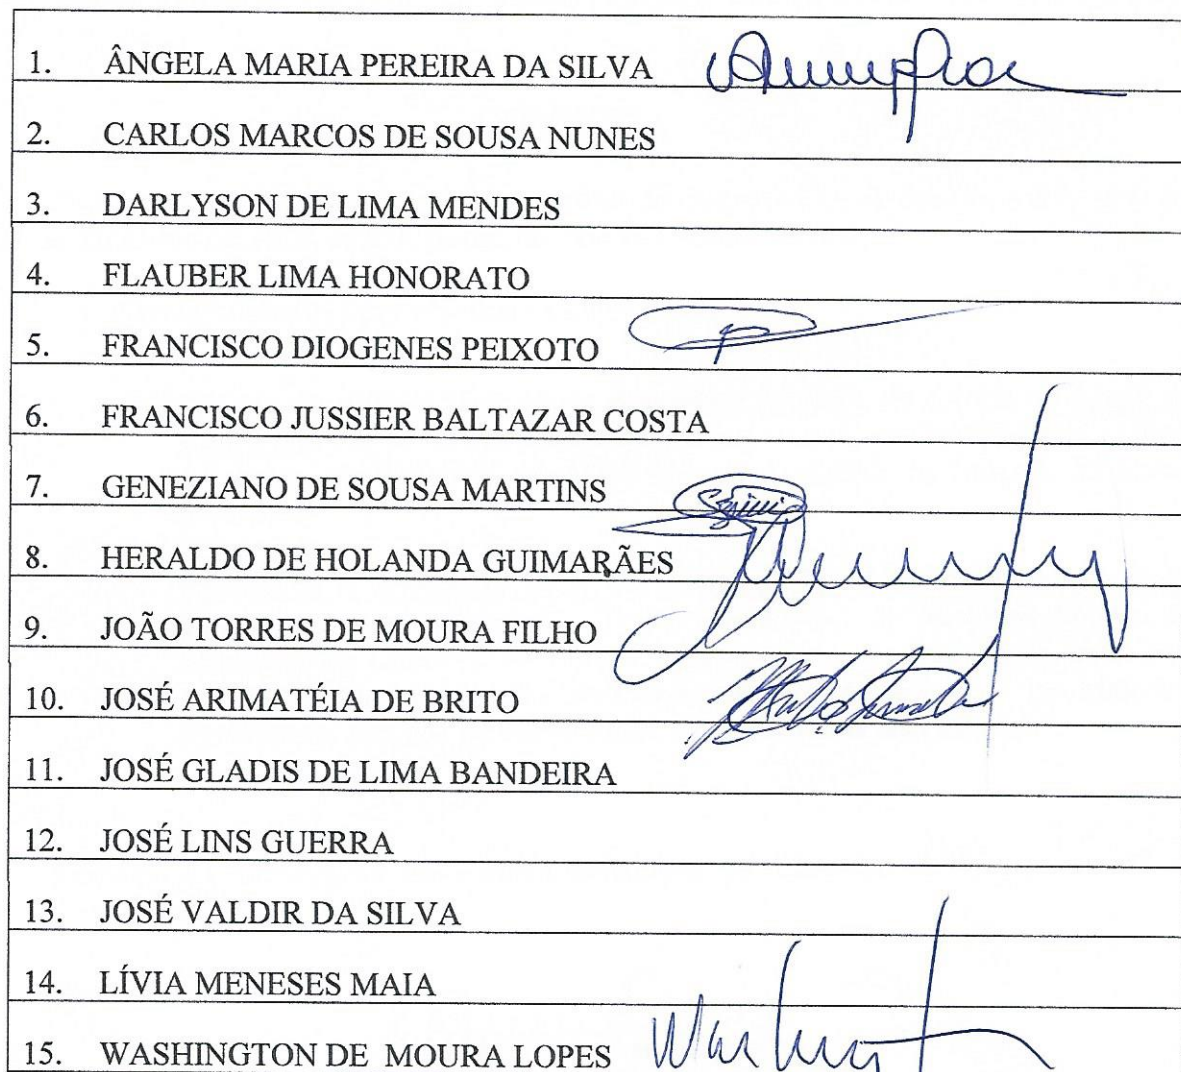 1. ÂNGELA MARIA PEREIRA DA SILVA
2. CARLOS MARCOS DE SOUSA NUNES
3. DARLYSON DE LIMA MENDES
4. FLAUBER LIMA HONORATO
5. FRANCISCO DIOGENES PEIXOTO
6. FRANCISCO JUSSIER BALTAZAR COSTA
7. GENEZIANO DE SOUSA MARTINS
8. HERALDO DE HOLANDA GUIMARÃES
9. JOÃO TORRES DE MOURA FILHO
10. JOSÉ ARIMATÉIA DE BRITO
11. JOSÉ GLADIS DE LIMA BANDEIRA
12. JOSÉ LINS GUERRA
13. JOSÉ VALDIR DA SILVA
14. LÍVIA MENESES MAIA
15. WASHINGTON DE MOURA LOPES